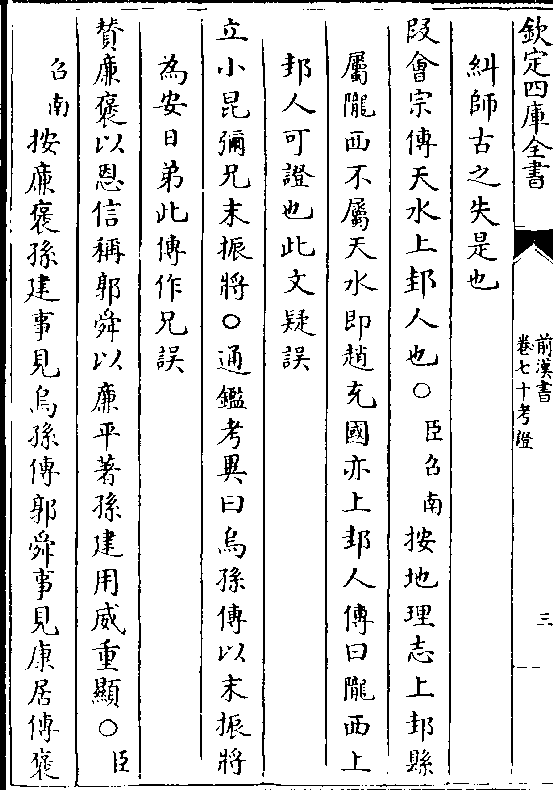 欽定四庫全書
前漢書
卷七十考證
三
糾師古之失是也
段會宗傳天水上邽人也○臣召南按地理志上邽縣
屬隴西不屬天水即趙充國亦上邽人傳曰隴西上
邽人可證也此文疑誤
立小昆彌兄末振將○通鑑考異曰烏孫傳以末振將
為安日弟此傳作兄誤
賛廉褒以恩信稱郭舜以廉平著孫建用威重顯○臣
召南按廉褒孫建事見烏孫傳郭舜事見康居傳褒